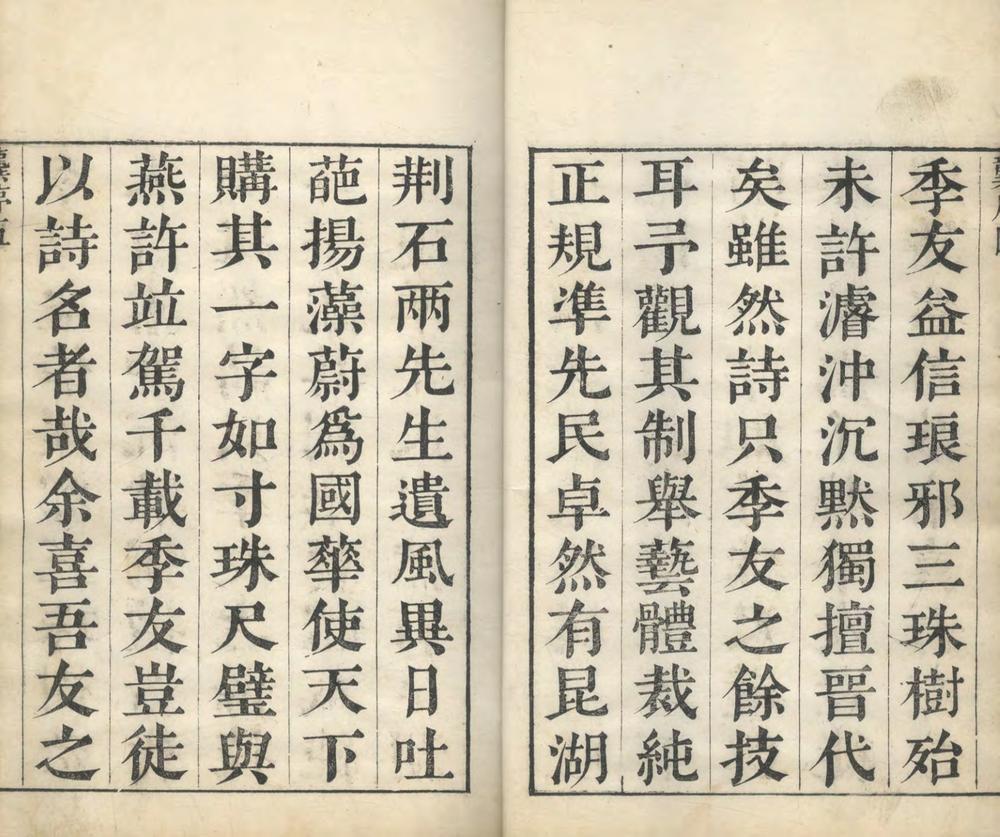 季友益信琅邪三珠樹殆
未許濬沖沉默獨擅晉代
矣雖然詩只季友之餘技
耳予觀其制舉藝體裁純
正規準先民卓然有昆湖
荆石兩先生遺風異日吐
葩揚藻蔚爲國華使天下
購其一字如寸珠尺璧與
燕許竝駕千載季友豈徒
以詩名者哉余喜吾友之